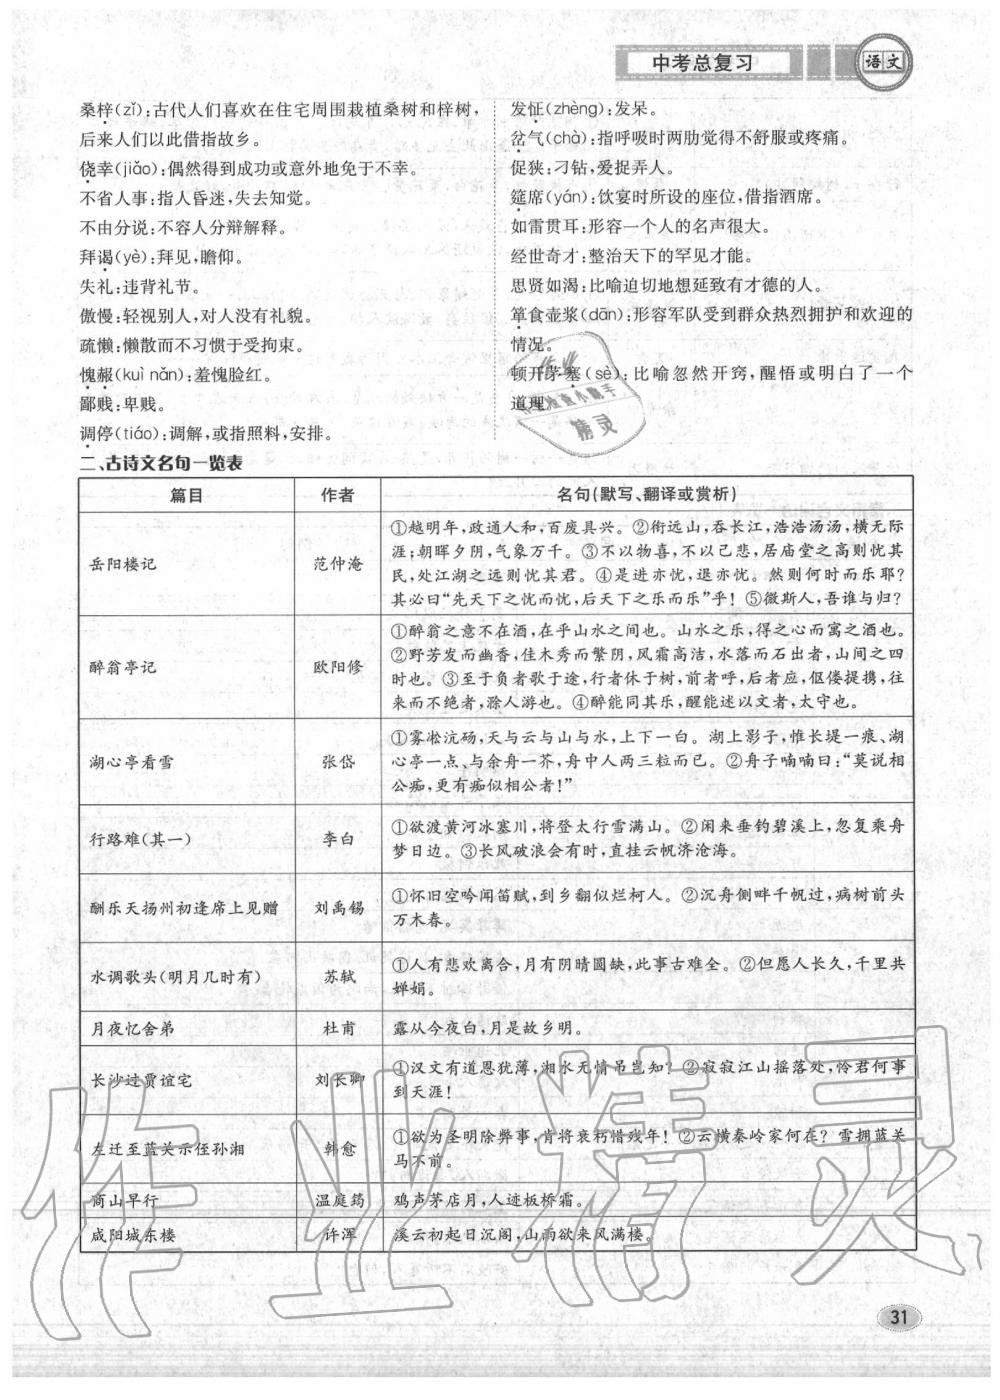 中考总复习
语文
桑梓(zǐ):古代人们喜欢在住宅周围栽植桑树和梓树,
后来人们以此借指故乡。
侥幸(jiǎo):偶然得到成功或意外地免于不幸。
不省人事:指人昏迷,失去知觉。
不由分说:不容人分辩解释。
拜谒(yè):拜见,瞻仰。
失礼:违背礼节。
傲慢:轻视别人,对人没有礼貌。
疏懒:懒散而不习惯于受拘束。
愧赧(kuì nǎn):羞愧脸红。
鄙贱:卑贱。
调停(tiáo):调解,或指照料,安排。
发怔(zhèng):发呆。
岔气(chà):指呼吸时两肋觉得不舒服或疼痛。
促狭:刁钻,爱捉弄人。
筵席(yán):饮宴时所设的座位,借指酒席。
如雷贯耳:形容一个人的名声很大。
经世奇才:整治天下的罕见才能。
思贤如渴:比喻迫切地想延致有才德的人。
箪食壶浆(dān):形容军队受到群众热烈拥护和欢迎的
情况。
顿开茅塞(sè):比喻忽然开窍,醒悟或明白了一个
道理。
二、古诗文名句一览表
篇目 作者 名句(默写、翻译或赏析)
岳阳楼记 范仲淹 ①越明年,政通人和,百废具兴。②衔远山,吞长江,浩浩汤汤,横无际
涯;朝晖夕阴,气象万千。③不以物喜,不以己悲,居庙堂之高则忧其
民,处江湖之远则忧其君。④是进亦忧,退亦忧。然则何时而乐耶?
其必曰“先天下之忧而忧,后天下之乐而乐”乎!⑤微斯人,吾谁与归?
醉翁亭记 欧阳修 ①醉翁之意不在酒,在乎山水之间也。山水之乐,得之心而寓之酒也。
②野芳发而幽香,佳木秀而繁阴,风霜高洁,水落而石出者,山间之四
时也。③至于负者歌于途,行者休于树,前者呼,后者应,伛偻提携,往
来而不绝者,滁人游也。④醉能同其乐,醒能述以文者,太守也。
湖心亭看雪 张岱 ①雾凇沆砀,天与云与山与水,上下一白。湖上影子,惟长堤一痕、湖
心亭一点、与余舟一芥,舟中人两三粒而已。②舟子喃喃曰:“莫说相
公痴,更有痴似相公者!”
行路难(其一) 李白 ①欲渡黄河冰塞川,将登太行雪满山。②闲来垂钓碧溪上,忽复乘舟
梦日边。③长风破浪会有时,直挂云帆济沧海。
酬乐天扬州初逢席上见赠 刘禹锡 ①怀旧空吟闻笛赋,到乡翻似烂柯人。②沉舟侧畔千帆过,病树前头
万木春。
水调歌头(明月几时有) 苏轼 ①人有悲欢离合,月有阴晴圆缺,此事古难全。②但愿人长久,千里共
婵娟。
月夜忆舍弟 杜甫 露从今夜白,月是故乡明。
长沙过贾谊宅 刘长卿 ①汉文有道恩犹薄,湘水无情吊岂知?②寂寂江山摇落处,怜君何事
到天涯!
左迁至蓝关示侄孙湘 韩愈 ①欲为圣明除弊事,肯将衰朽惜残年!②云横秦岭家何在?雪拥蓝关
马不前。
商山早行 温庭筠 鸡声茅店月,人迹板桥霜。
咸阳城东楼 许浑 溪云初起日沉阁,山雨欲来风满楼。
31
作业精灵